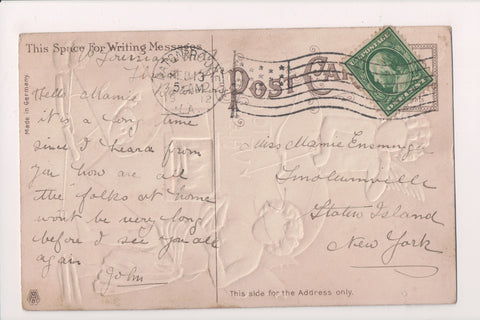 This Space For Writing Messages
Louisiana
Hello Mamie
it is a long time
since I heard from
you how are all
the "folks at home
wont be very long
before I see you all
again
John
Made in Germany.
FEB 13
5 PM
1912
LA.
POST CARD
U.S. POSTAGE
ONE CENT
Miss Mamie Ensminger
Linoleumville
Staten Island
New York
This side for the Address only.